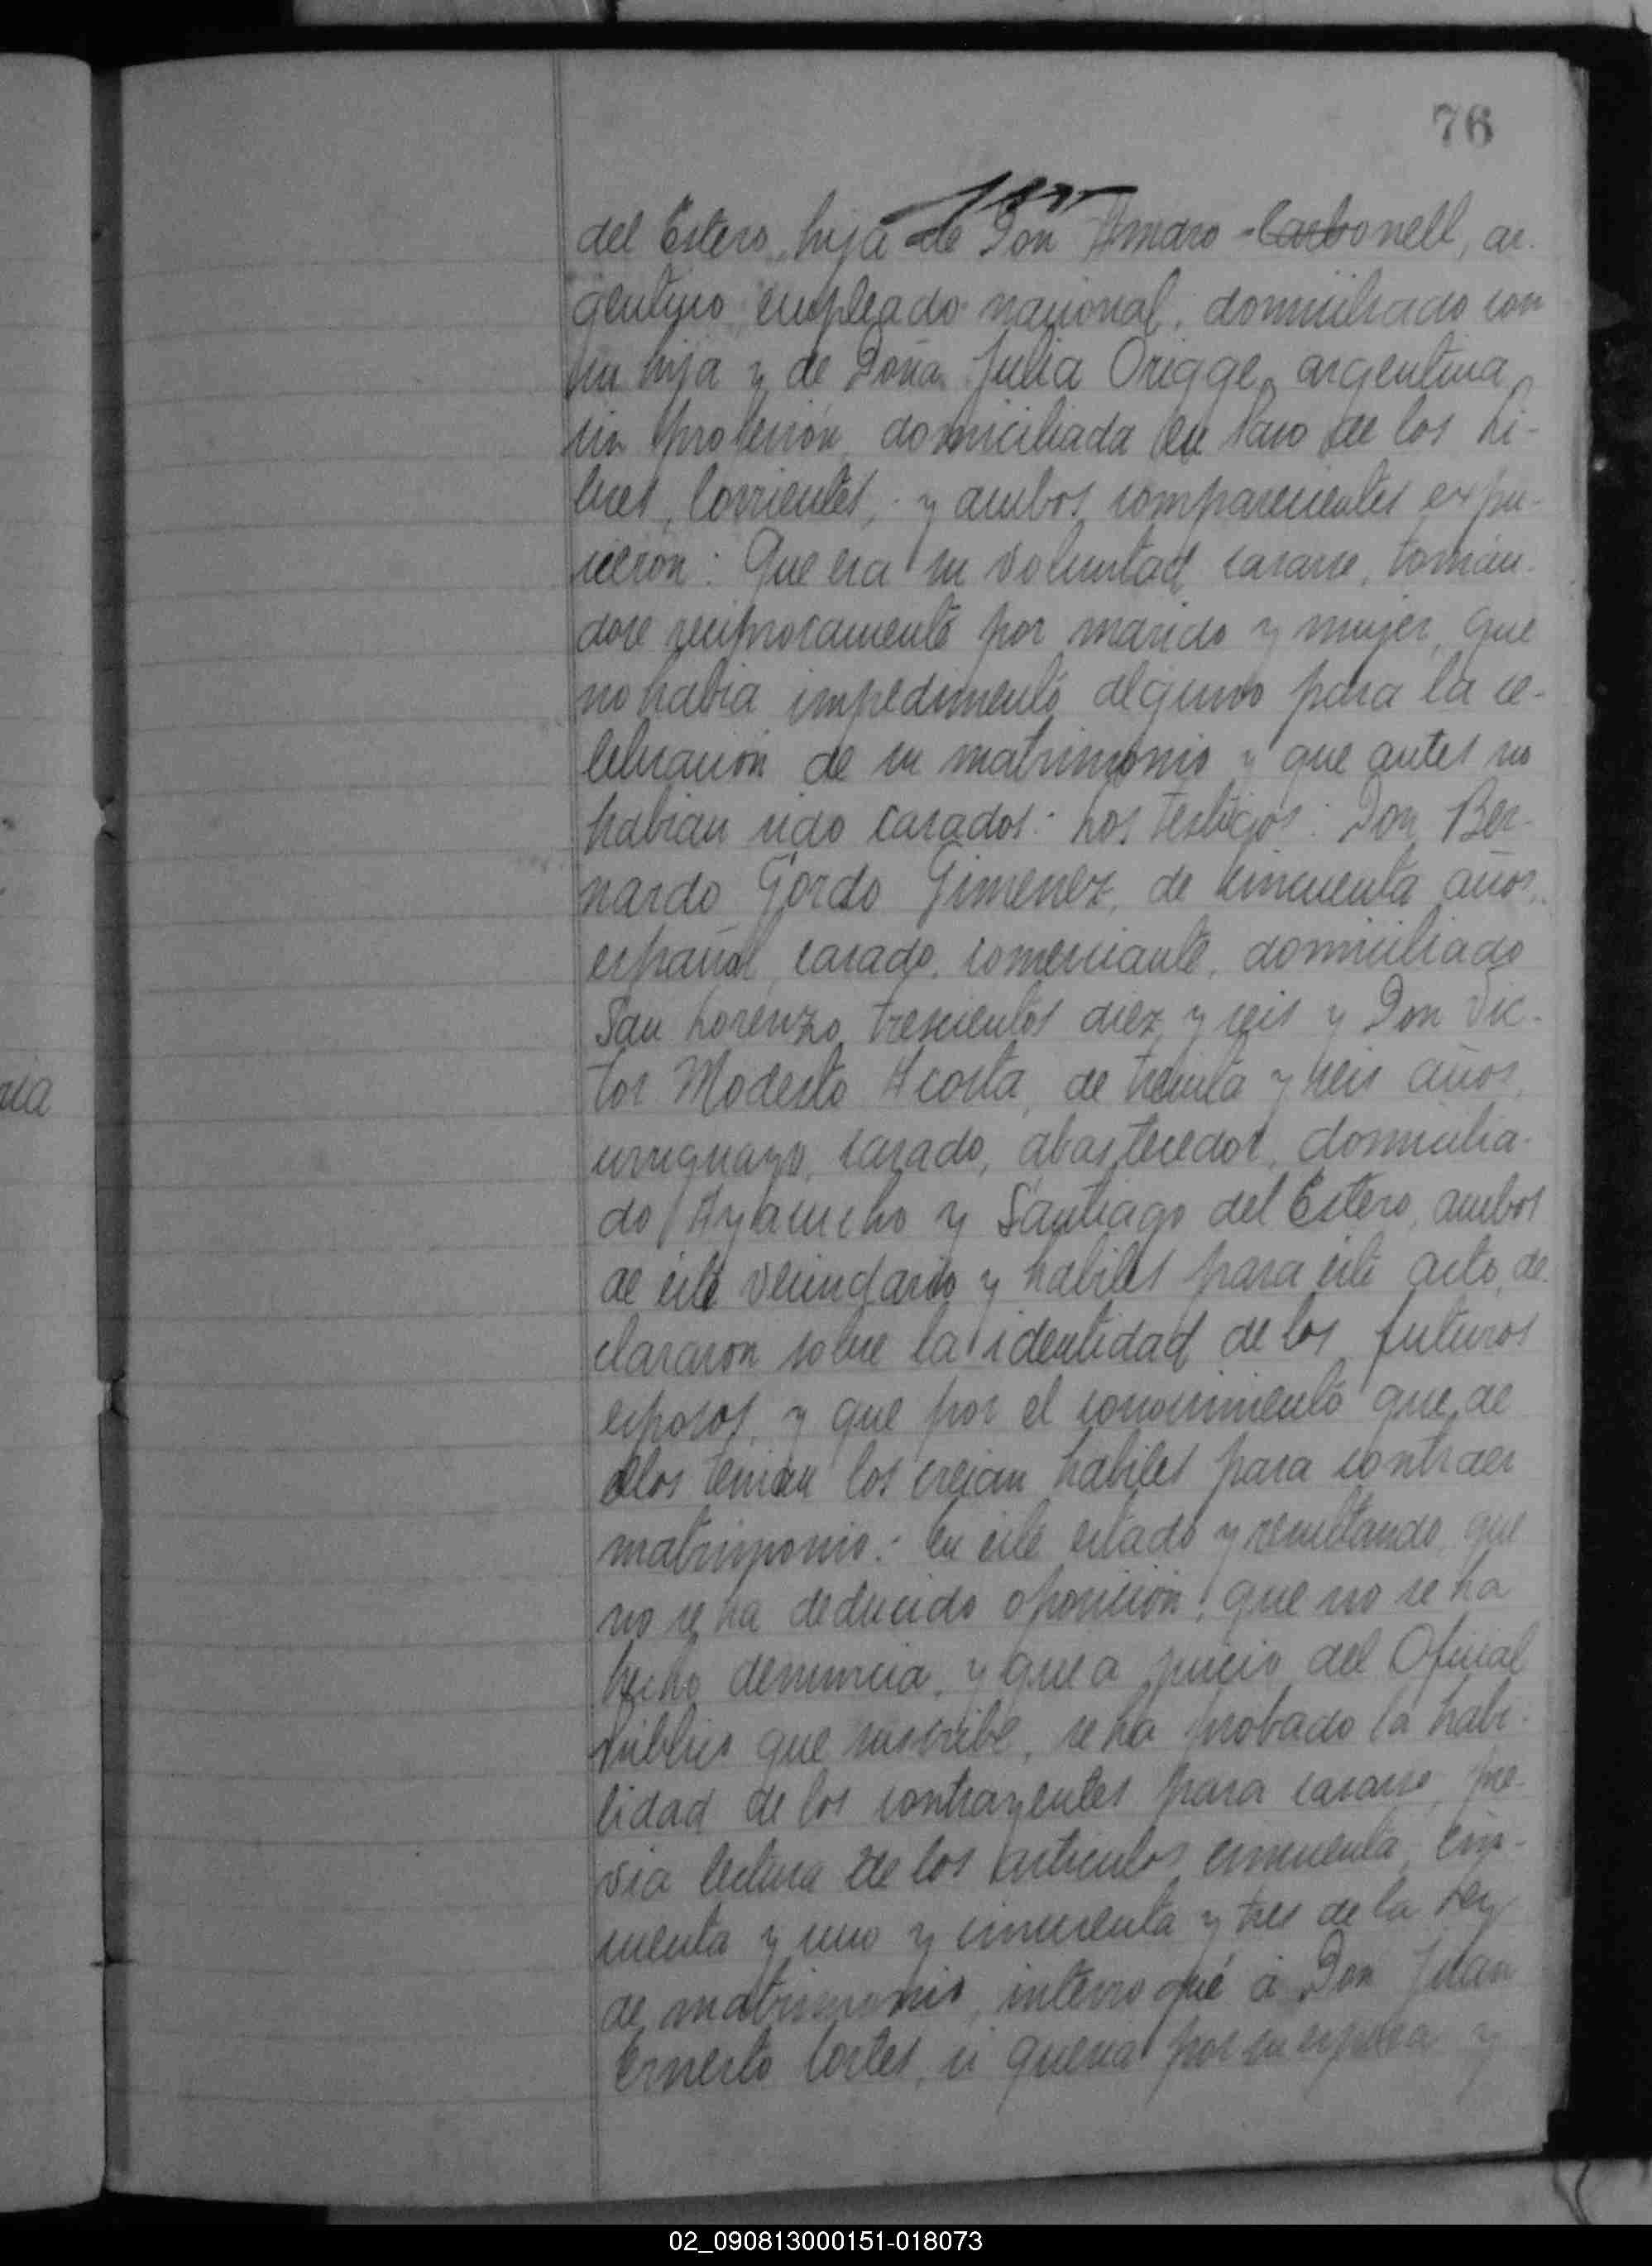 76
del Estero, hija de Don Amaro Carbonell, ar-
gentino, empleado nacional, domiciliado con
su hija y de Doña Julia Origge, argentina,
sin profesión, domiciliada en Paso de los Li-
bres, Corrientes, y ambos comparecientes expu-
sieron: Que era su voluntad casarse, tomán-
dose recíprocamente por marido y mujer, que
no habia impedimento alguno para la ce-
lebración de su matrimonio y que antes no
habian sido casados: Los testigos: Don Ber-
nardo Gordo Gimenez, de cincuenta años,
español, casado, comerciante, domiciliado
San Lorenzo trescientos diez y seis y Don Vic-
tor Modesto Acosta, de treinta y seis años,
uruguayo, casado, abastecedor, domicilia-
do Ayacucho y Santiago del Estero, ambos
de este vecindario y habiles para este acto, de-
clararon sobre la identidad de los futuros
esposos, y que por el conocimiento que de
ellos tenian los creian habiles para contraer
matrimonio: En este estado y resultando, que
no se ha deducido oposición, que no se ha
hecho denuncia, y que a juicio del Oficial
Público que suscribe, se ha probado la habi-
lidad de los contrayentes para casarse, pre-
via lectura de los articulos cincuenta, cin-
cuenta y uno y cincuenta y tres de la Ley
de matrimonio, interrogué á Don Juan
Ernesto Cortes, si queria por su esposa y
ria
02_090813000151-018073